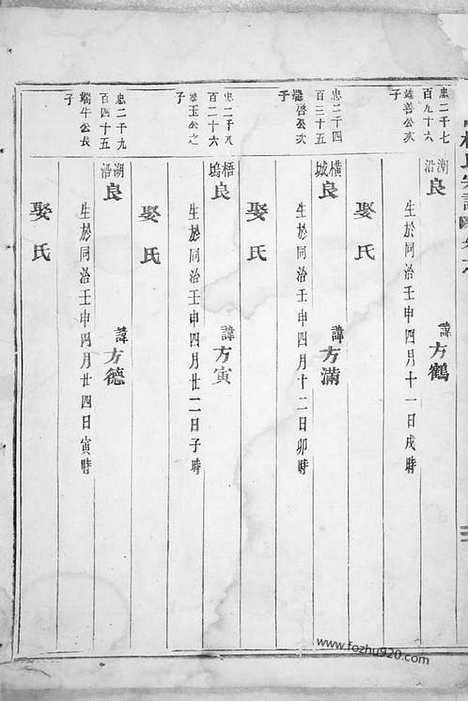 忠二千七
百九十六
善公次
子
湖沿
良
諱方鶴
生於同治壬申四月十一日戌時
娶氏
忠二千四
百三十五
啓公次
子
橫城
良
諱方滿
生於同治壬申四月十二日卯時
娶氏
忠二千八
百二十六
玉公之
子
梧塢
良
諱方寅
生於同治壬申四月廿二日子時
娶氏
忠二千九
百四十五
瑞牛公長
子
湖沿
良
諱方德
生於同治壬申四月廿四日寅時
娶氏
www.fozhu920.com